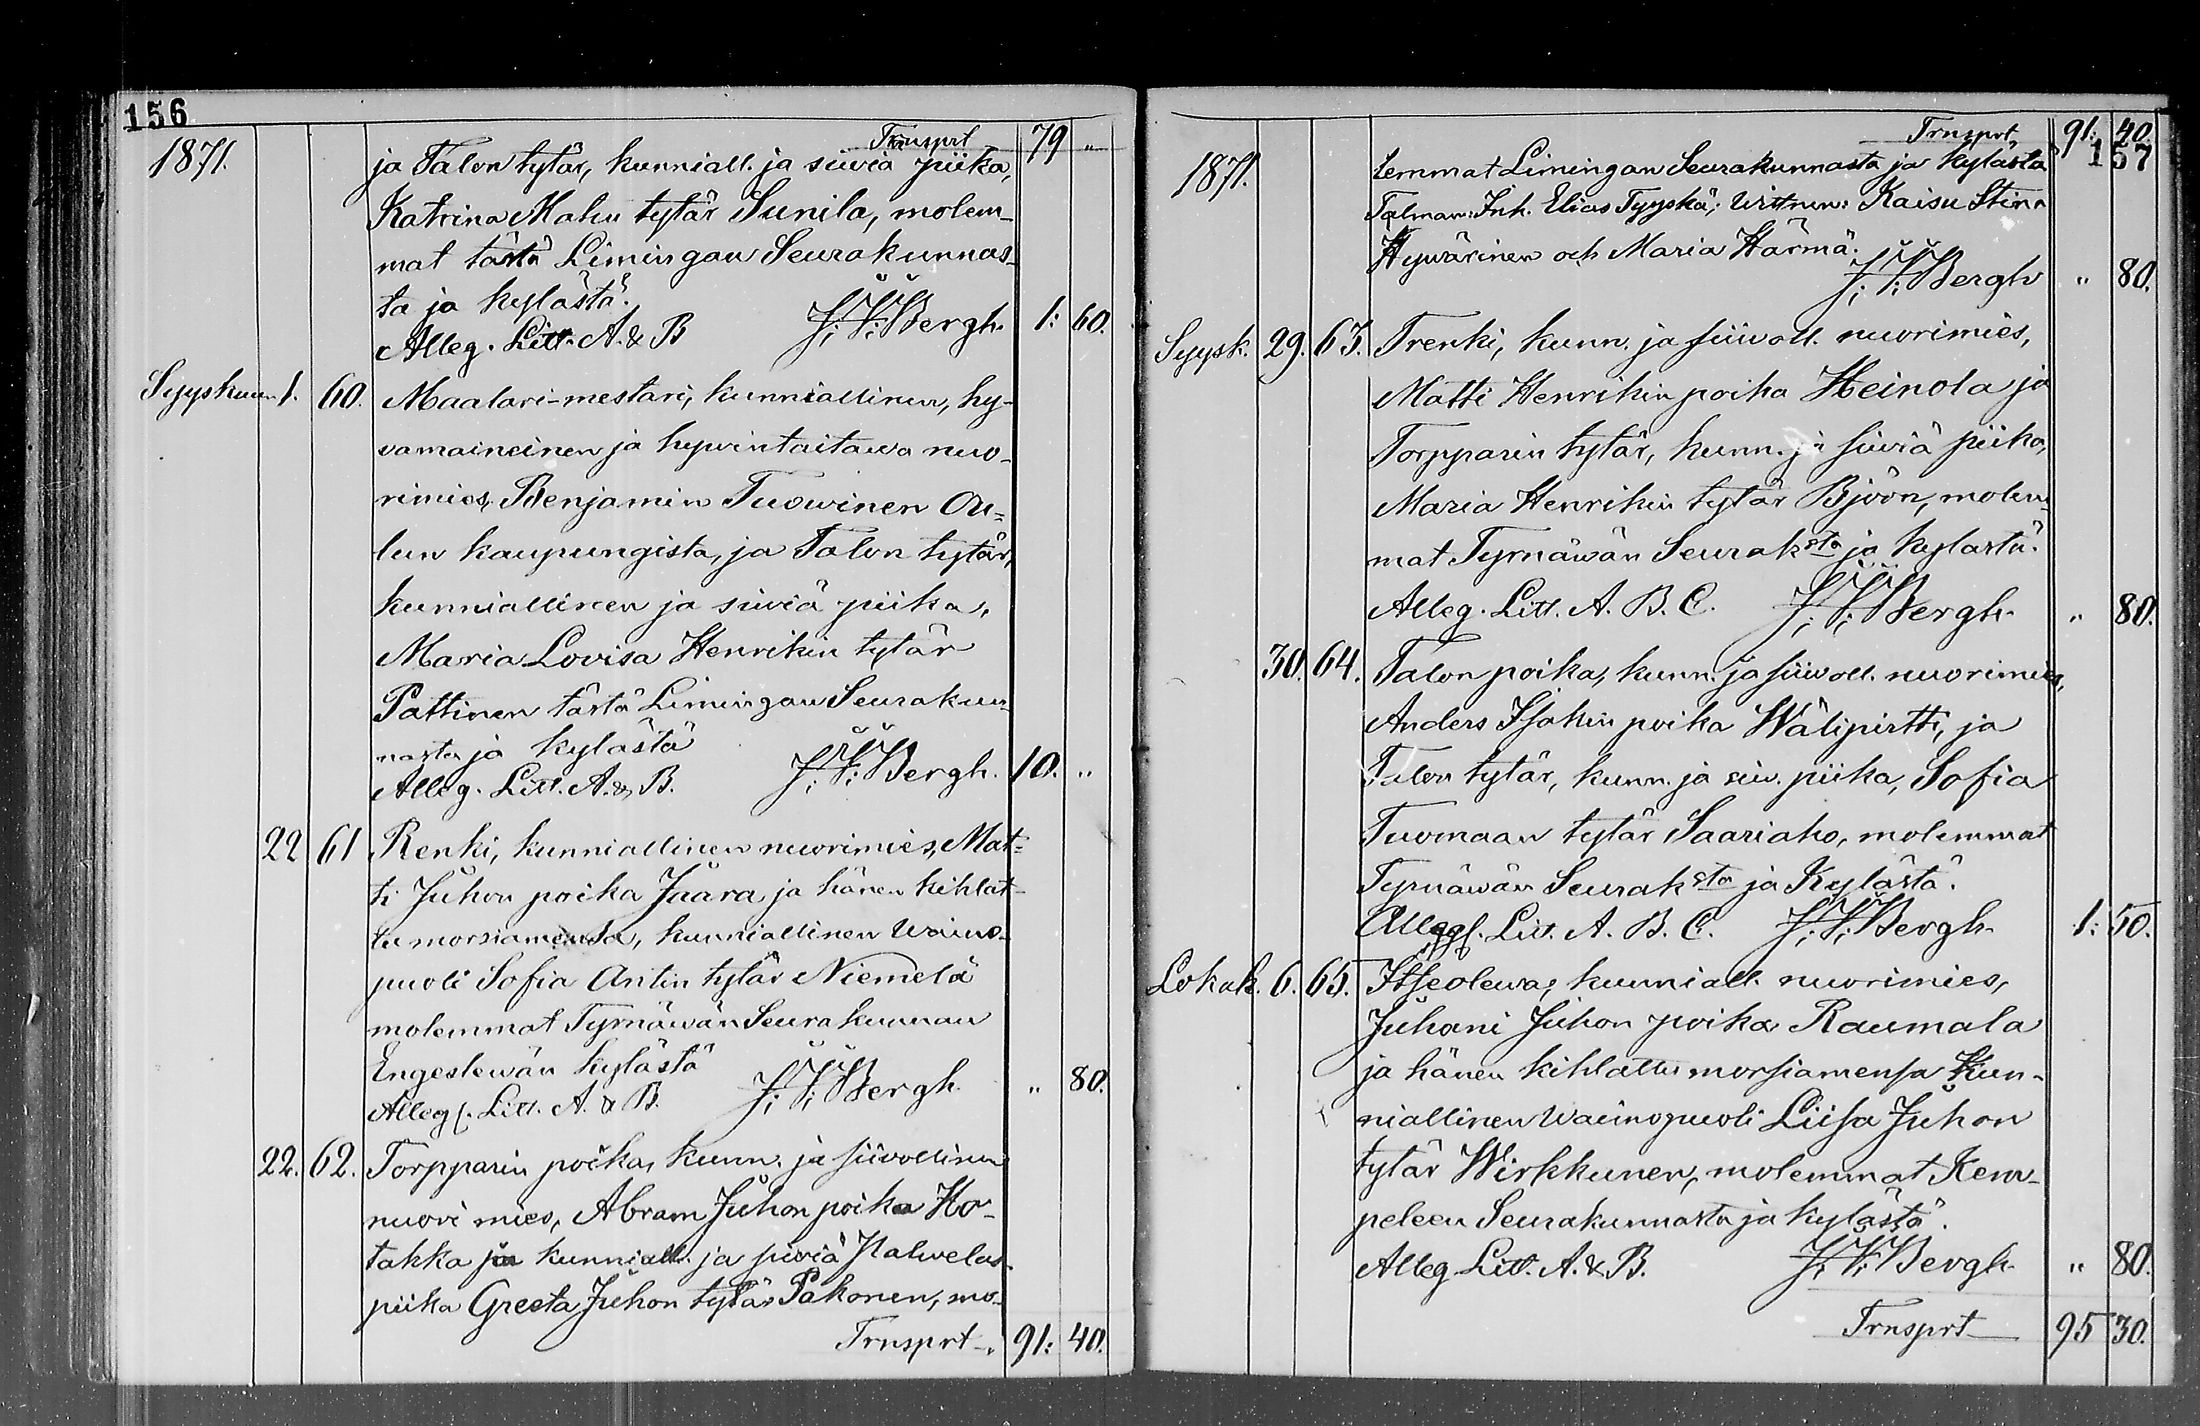 156
Trnsprt 79 "
1871. ja Talon tytär, kunniall. ja siiviä piika,
Katrina Mahu tytär Sunila, molem-
mat tästä Limingan Seurakunnas-
ta ja kylästä.
Alleg. Litt. A. & B Bergh. 1: 60.
Syyskuun 1. 60. Maalari-mestari, kunniallinen, hy-
vamaineinen ja hyvintaitawa nuo-
rimies, Benjamin Tuowinen Ou-
lun kaupungista, ja Talon tytär,
kunniallinen ja siiviä piika,
Maria Lovisa Henrikin tytär
Pattinen tästä Limingan Seurakun-
nasta ja kylästä
Alleg. Litt. A. & B. Bergh. 10. "
22 61 Renki, kunniallinen nuorimies, Mat-
ti Juhon poika Jaara, ja hänen kihlat-
tu morsiamensa, kunniallinen waimo-
puoli Sofia Antin tytär Niemelä
molemmat Tyrnäwän Seurakunnan
Engeslewän kylästä
Alleg. Litt. A. & B. Bergh. " 80.
22. 62. Torpparin poika, kunn. ja siivollinen
nuori mies, Abram Juhon poika Ho-
takka ja kunniall. ja siviä Palwelus-
piika Greeta Juhon tytär Pakonen, mo-
Trnsprt 91: 40.
Trnsprt 91: 40.
157
1871. lemmat Limingan Seurakunnasta ja kylästä
Talman: Inh. Elias Tyyskä; Wittnen: Kaisu Stina
Hywärinen och Maria Härmä.
Bergh " 80.
Syysk. 29. 63. Trenki, kunn. ja siivoll. nuorimies,
Matti Henrikin poika Heinola ja
Torpparin tytär, kunn. ja siiviä piika,
Maria Henrikin tytär Björn, molem-
mat Tyrnäwän Seuraksta ja kylästä.
Alleg. Litt. A. B. C. Bergh. " 80.
30. 64. Talon poika, kunn. ja siivoll. nuorimies,
Anders Isakin poika Wälipirtti, ja
Talon tytär, kunn. ja siiv. piika, Sofia
Tuomaan tytär Saariaho, molemmat
Tyrnäwän Seuraksta ja Kylästä.
Alleg. Litt. A. B. C. Bergh. 1: 50.
Lokak. 6. 65. Itseolewa, kunniall. nuorimies,
Juhani Juhon poika Raumala
ja hänen kihlattu morsiamensa Kun-
niallinen waimopuoli Liisa Juhon
tytär Wirkkunen, molemmat Kem-
peleen Seurakunnasta ja kylästä.
Alleg. Litt. A. & B. Bergh. " 80.
Trnsprt 95 30.